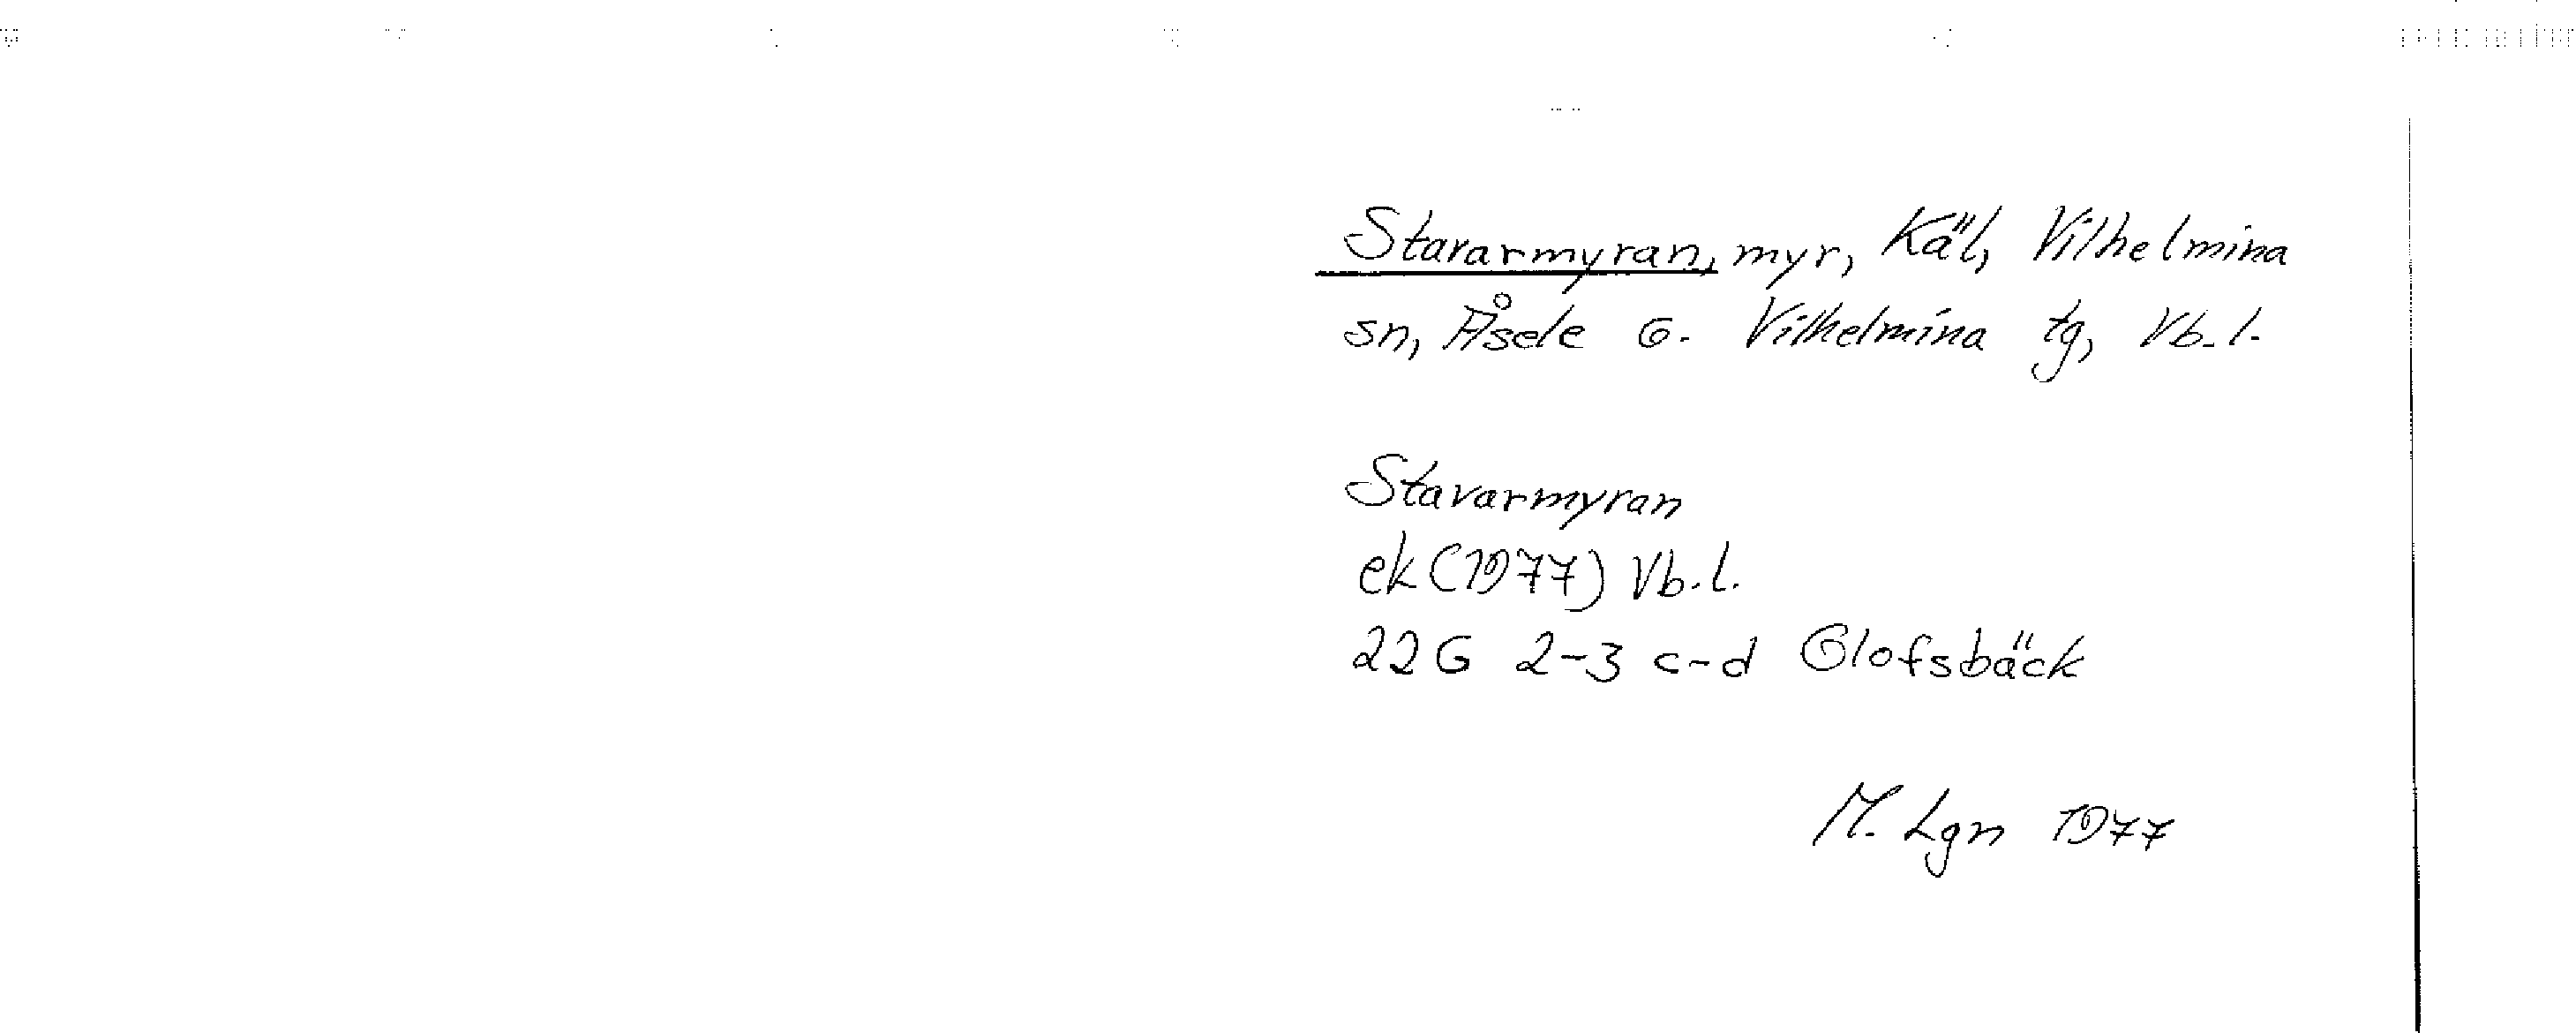 Stavarmyran, myr, Käl, Vilhelmina
sn, Åsele o. Vilhelmina tg, Vb. l.
Stavarmyran
ek (1977) Vb. l.
22G 2-3 c-d Olofsbäck
M. Lgn 1977